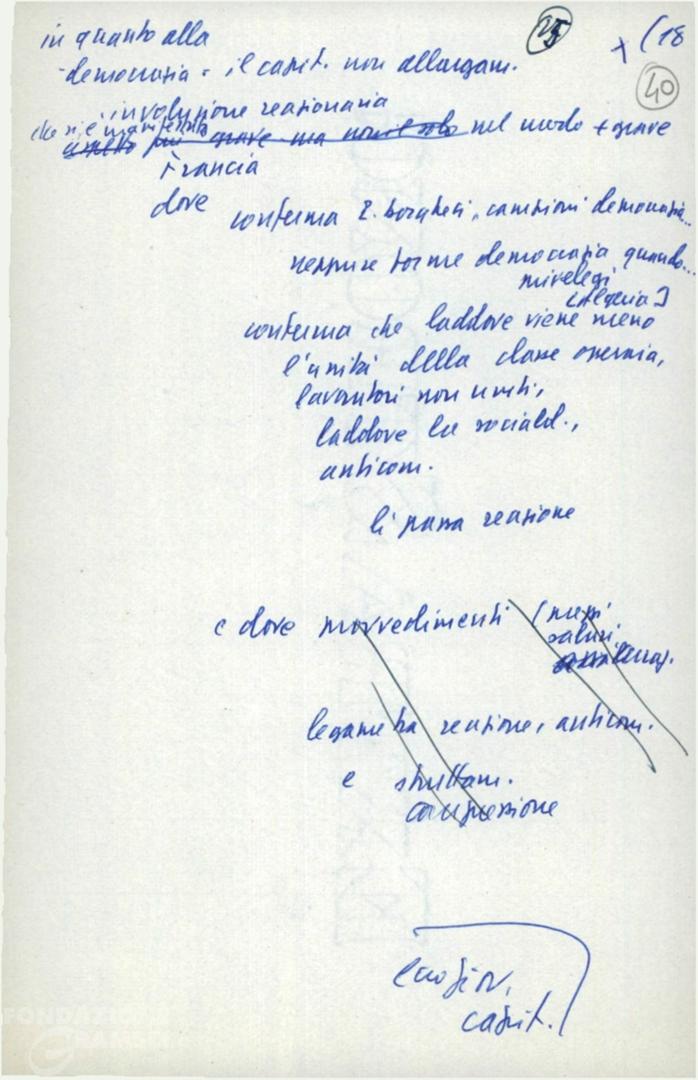 25
+ (18
40
in quanto alla
democrazia = il capit. non allargam.
involuzione reazionaria
che si è manifestata
più grave ma non solo nel modo + grave
Francia
dove
conferma I. borghesi, campioni democrazia...
neppure forme democrazia quando...
privilegi
(Algeria)
conferma che laddove viene meno
l'unità della classe operaia,
lavoratori non uniti,
laddove la sociald.,
anticom.
lì passa reazione
e dove provvedimenti (prezzi
salari
legame tra reazione, anticom.
e sfruttam.
compressione
capit.
FONDAZIONE
GRAMSCI